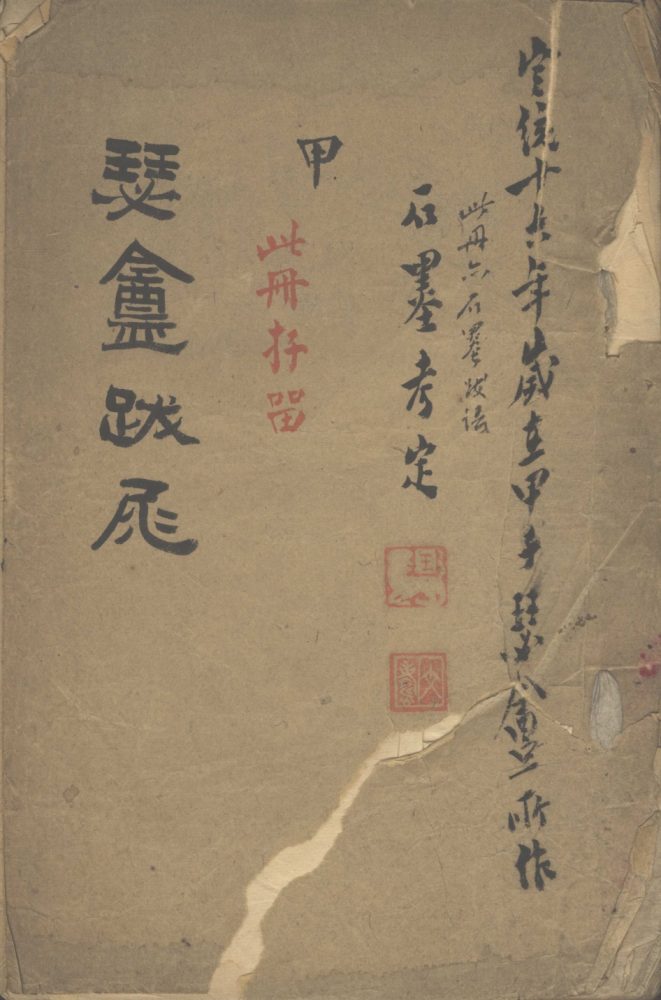 宣統十六年歲在甲子瑟盦所作
此冊亦石墨跋語
石墨考定
甲
此冊存留
瑟盦跋尾